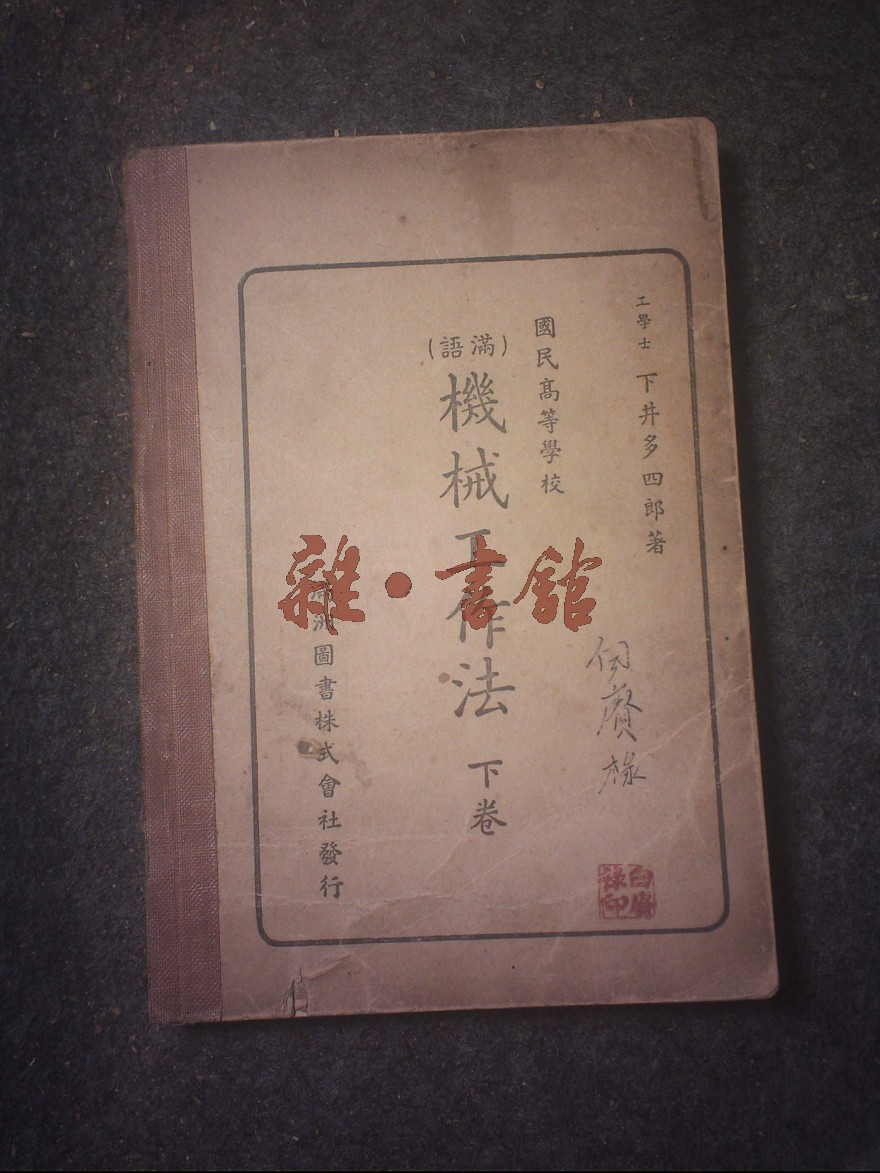 工學士 下井多四郎著
國民高等學校
(滿語)
機械工作法 下卷
滿洲圖書株式會社發行
雜·書館